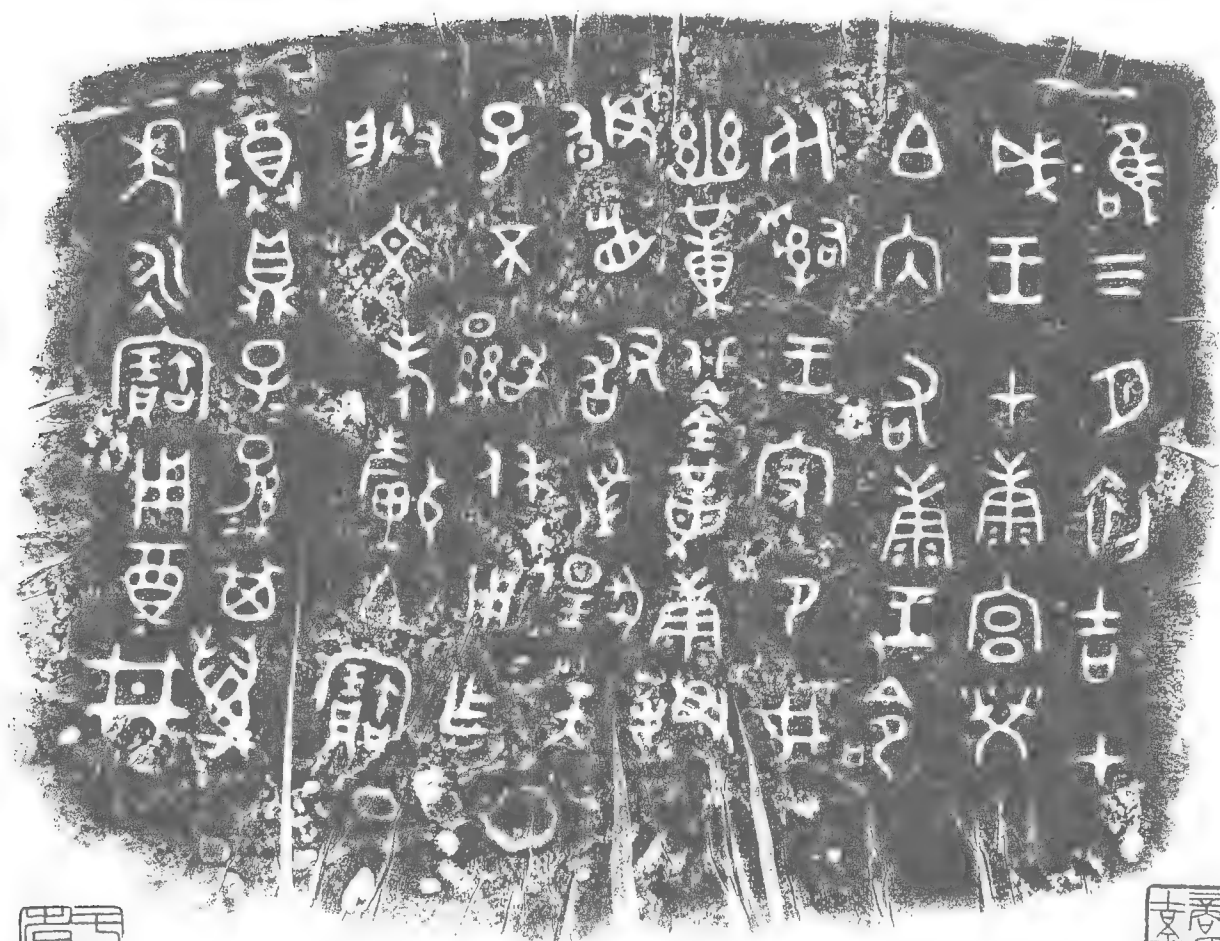 唯三月初吉甲
戌王才康宮榮
白內右康王令
死𤔲王家令女
幽黃鋚革康拜
𩒨首敢對揚天
子不顯休用乍
朕文考釐白寶
尊鼎子=孫=其萬
年永寶用奠井